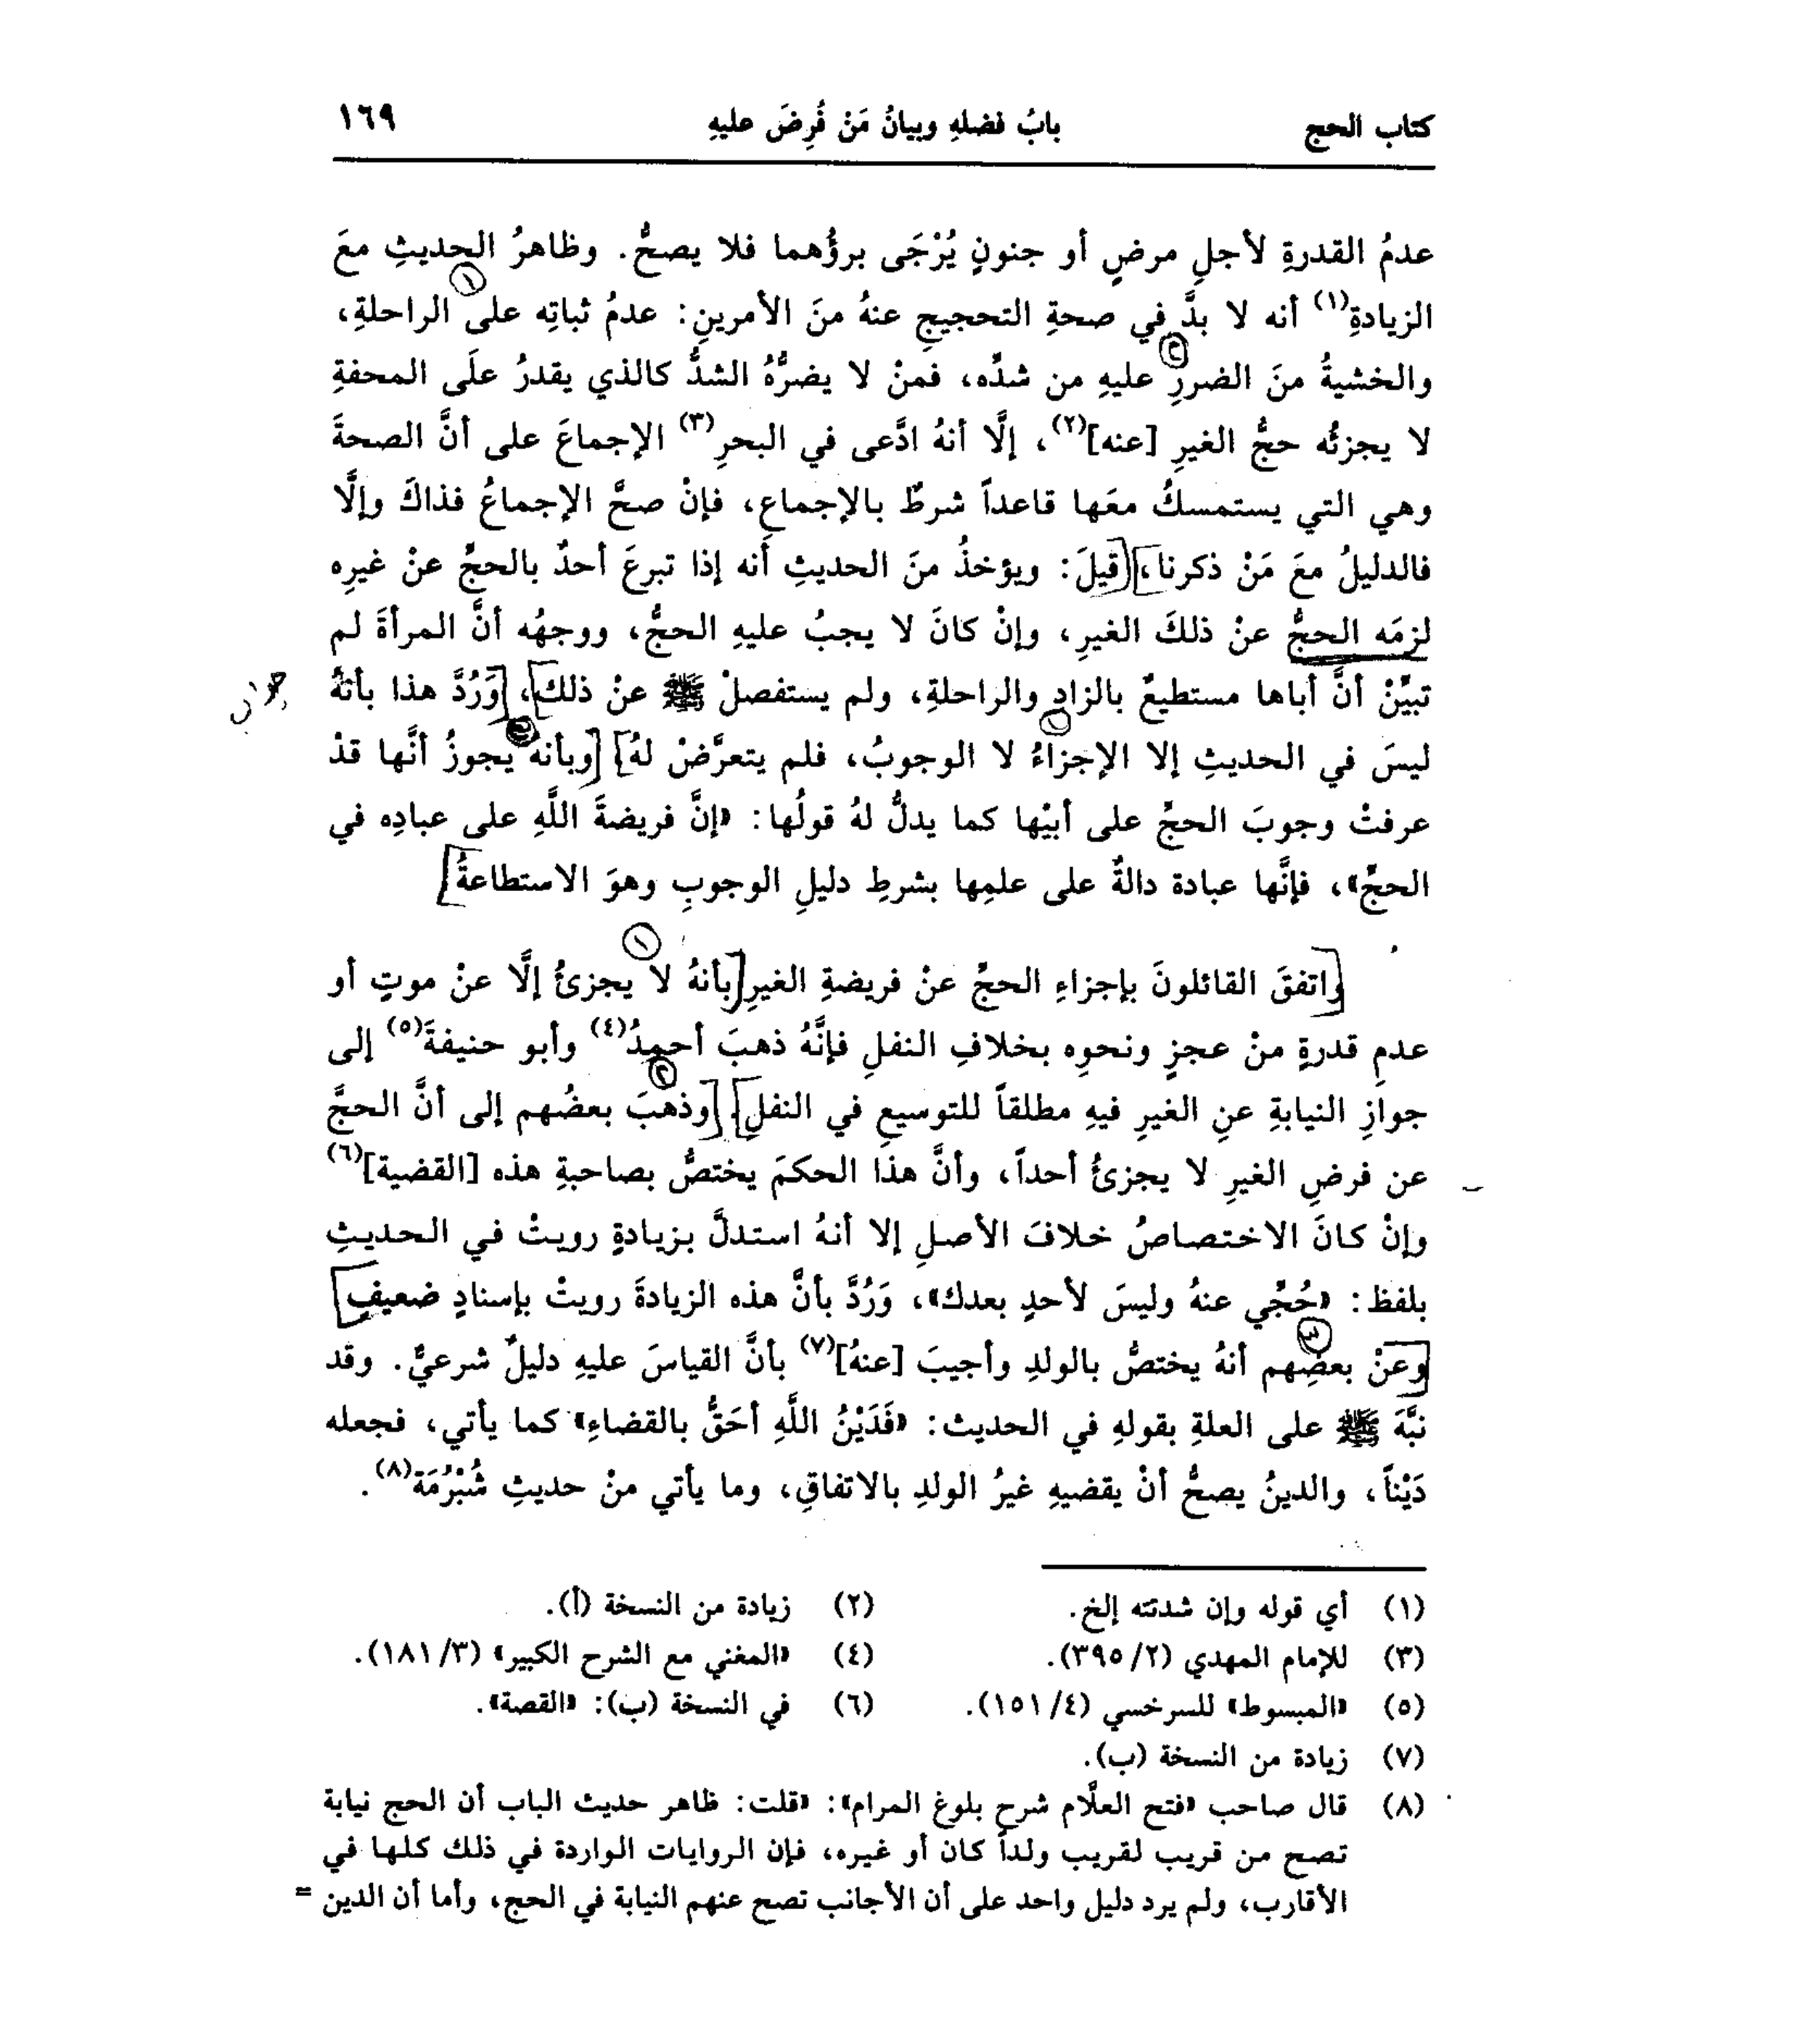 كتاب الحج بابُ فضلهِ وبيانُ مَنْ فُرِضَ عليهِ ١٦٩
عدمُ القدرةِ لأجلِ مرضٍ أو جنونٍ يُرْجَى برؤُهما فلا يصحُّ. وظاهرُ الحديثِ معَ
الزيادةِ(١) أنه لا بدَّ في صحةِ التحجيجِ عنهُ منَ الأمرينِ: عدمُ ثباتِه على الراحلةِ،
والخشيةُ منَ الضررِ عليهِ من شدِّه، فمنْ لا يضرُّهُ الشدُّ كالذي يقدرُ علَى المحفةِ
لا يجزئُه حجُّ الغيرِ [عنه](٢)، إلَّا أنهُ ادَّعى في البحرِ(٣) الإجماعَ على أنَّ الصحةَ
وهي التي يستمسكُ معَها قاعداً شرطٌ بالإجماعِ، فإنْ صحَّ الإجماعُ فذاكَ وإلَّا
فالدليلُ معَ مَنْ ذكرنا، قيلَ: ويؤخذُ منَ الحديثِ أنه إذا تبرعَ أحدٌ بالحجِّ عنْ غيرِه
لزمَه الحجُّ عنْ ذلكَ الغيرِ، وإنْ كانَ لا يجبُ عليهِ الحجُّ، ووجهُه أنَّ المرأةَ لم
تبيِّنْ أنَّ أباها مستطيعٌ بالزادِ والراحلةِ، ولم يستفصلْ ﷺ عنْ ذلكَ، وَرُدَّ هذا بأنهُ
ليسَ في الحديثِ إلا الإجزاءُ لا الوجوبُ، فلم يتعرَّضْ لهُ وبأنه يجوزُ أنَّها قدْ
عرفتْ وجوبَ الحجِّ على أبيْها كما يدلُّ لهُ قولُها: «إنَّ فريضةَ اللَّهِ على عبادِه في
الحجِّ»، فإنَّها عبادة دالةٌ على علمِها بشرطِ دليلِ الوجوبِ وهوَ الاستطاعةُ
١
واتفقَ القائلونَ بإجزاءِ الحجِّ عنْ فريضةِ الغيرِ بأنهُ لا يجزئُ إلَّا عنْ موتٍ أو
عدمِ قدرةٍ منْ عجزٍ ونحوِه بخلافِ النفلِ فإنَّهُ ذهبَ أحمدُ(٤) وأبو حنيفةَ(٥) إلى
جوازِ النيابةِ عنِ الغيرِ فيهِ مطلقاً للتوسيعِ في النفلِ. وذهبَ بعضُهم إلى أنَّ الحجَّ
عن فرضِ الغيرِ لا يجزئُ أحداً، وأنَّ هذا الحكمَ يختصُّ بصاحبةِ هذه [القضية](٦)
وإنْ كانَ الاختصاصُ خلافَ الأصلِ إلا أنهُ استدلَّ بزيادةٍ رويتْ في الحديثِ
بلفظ: «حُجِّي عنهُ وليسَ لأحدٍ بعدك»، وَرُدَّ بأنَّ هذه الزيادةَ رويتْ بإسنادٍ ضعيفٍ
وعنْ بعضِهم أنهُ يختصُّ بالولدِ وأجيبَ [عنهُ](٧) بأنَّ القياسَ عليهِ دليلٌ شرعيٌّ. وقد
نبَّهَ ﷺ على العلةِ بقولهِ في الحديث: «فَدَيْنُ اللَّهِ أحَقُّ بالقضاءِ» كما يأتي، فجعله
دَيْناً، والدينُ يصحُّ أنْ يقضيهِ غيرُ الولدِ بالاتفاقِ، وما يأتي منْ حديثِ شُبْرُمَة(٨).
(١) أي قوله وإن شددته إلخ. (٢) زيادة من النسخة (أ).
(٣) للإمام المهدي (٢/ ٣٩٥). (٤) «المغني مع الشرح الكبير» (٣/ ١٨١).
(٥) «المبسوط» للسرخسي (٤/ ١٥١). (٦) في النسخة (ب): «القصة».
(٧) زيادة من النسخة (ب).
(٨) قال صاحب «فتح العلَّام شرح بلوغ المرام»: «قلت: ظاهر حديث الباب أن الحج نيابة
تصح من قريب لقريب ولداً كان أو غيره، فإن الروايات الواردة في ذلك كلها في
الأقارب، ولم يرد دليل واحد على أن الأجانب تصح عنهم النيابة في الحج، وأما أن الدين =